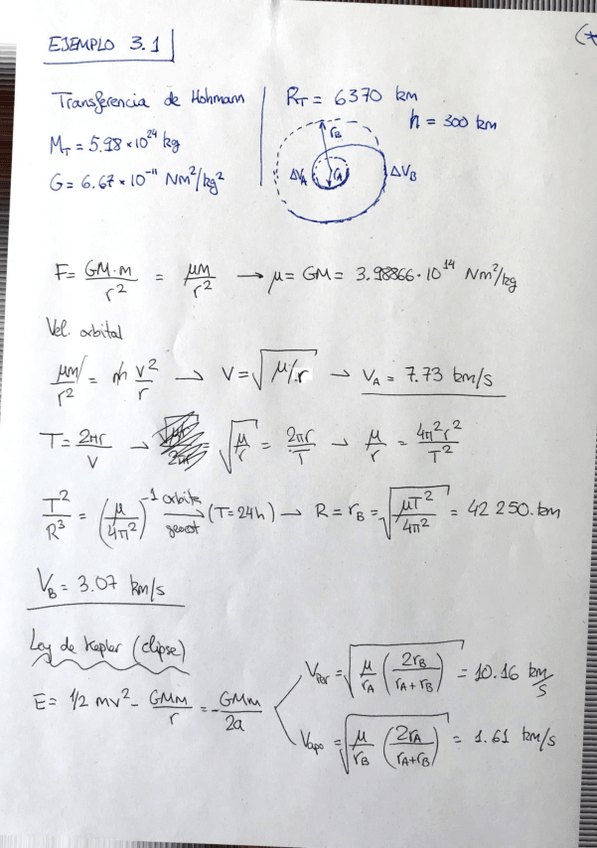 EJEMPLO 3.1
(*
Transferencia de Hohmann
M_T = 5.98 × 10^24 kg
G = 6.67 × 10^-11 Nm^2/kg^2
R_T = 6370 km
h = 300 km
r_B
ΔV_A r_A ΔV_B
F = GM·m/r^2 = μm/r^2 → μ = GM = 3.98866·10^14 Nm^2/kg
Vel. orbital
μm/r^2 = m v^2/r → V = √(μ/r) → V_A = 7.73 km/s
T = 2πr/V → √(μ/r) = 2πr/T → μ/r = 4π^2r^2/T^2
T^2/R^3 = (μ/4π^2)^-1 orbita geoest → (T = 24h) → R = r_B = √(μT^2/4π^2) = 42 250. km
V_B = 3.07 km/s
Ley de Kepler (elipse)
E = 1/2 mv^2 - GMm/r = -GMm/2a
V_Per = √(μ/r_A (2r_B/(r_A + r_B))) = 10.16 km/s
V_apo = √(μ/r_B (2r_A/(r_A+r_B))) = 1.61 km/s